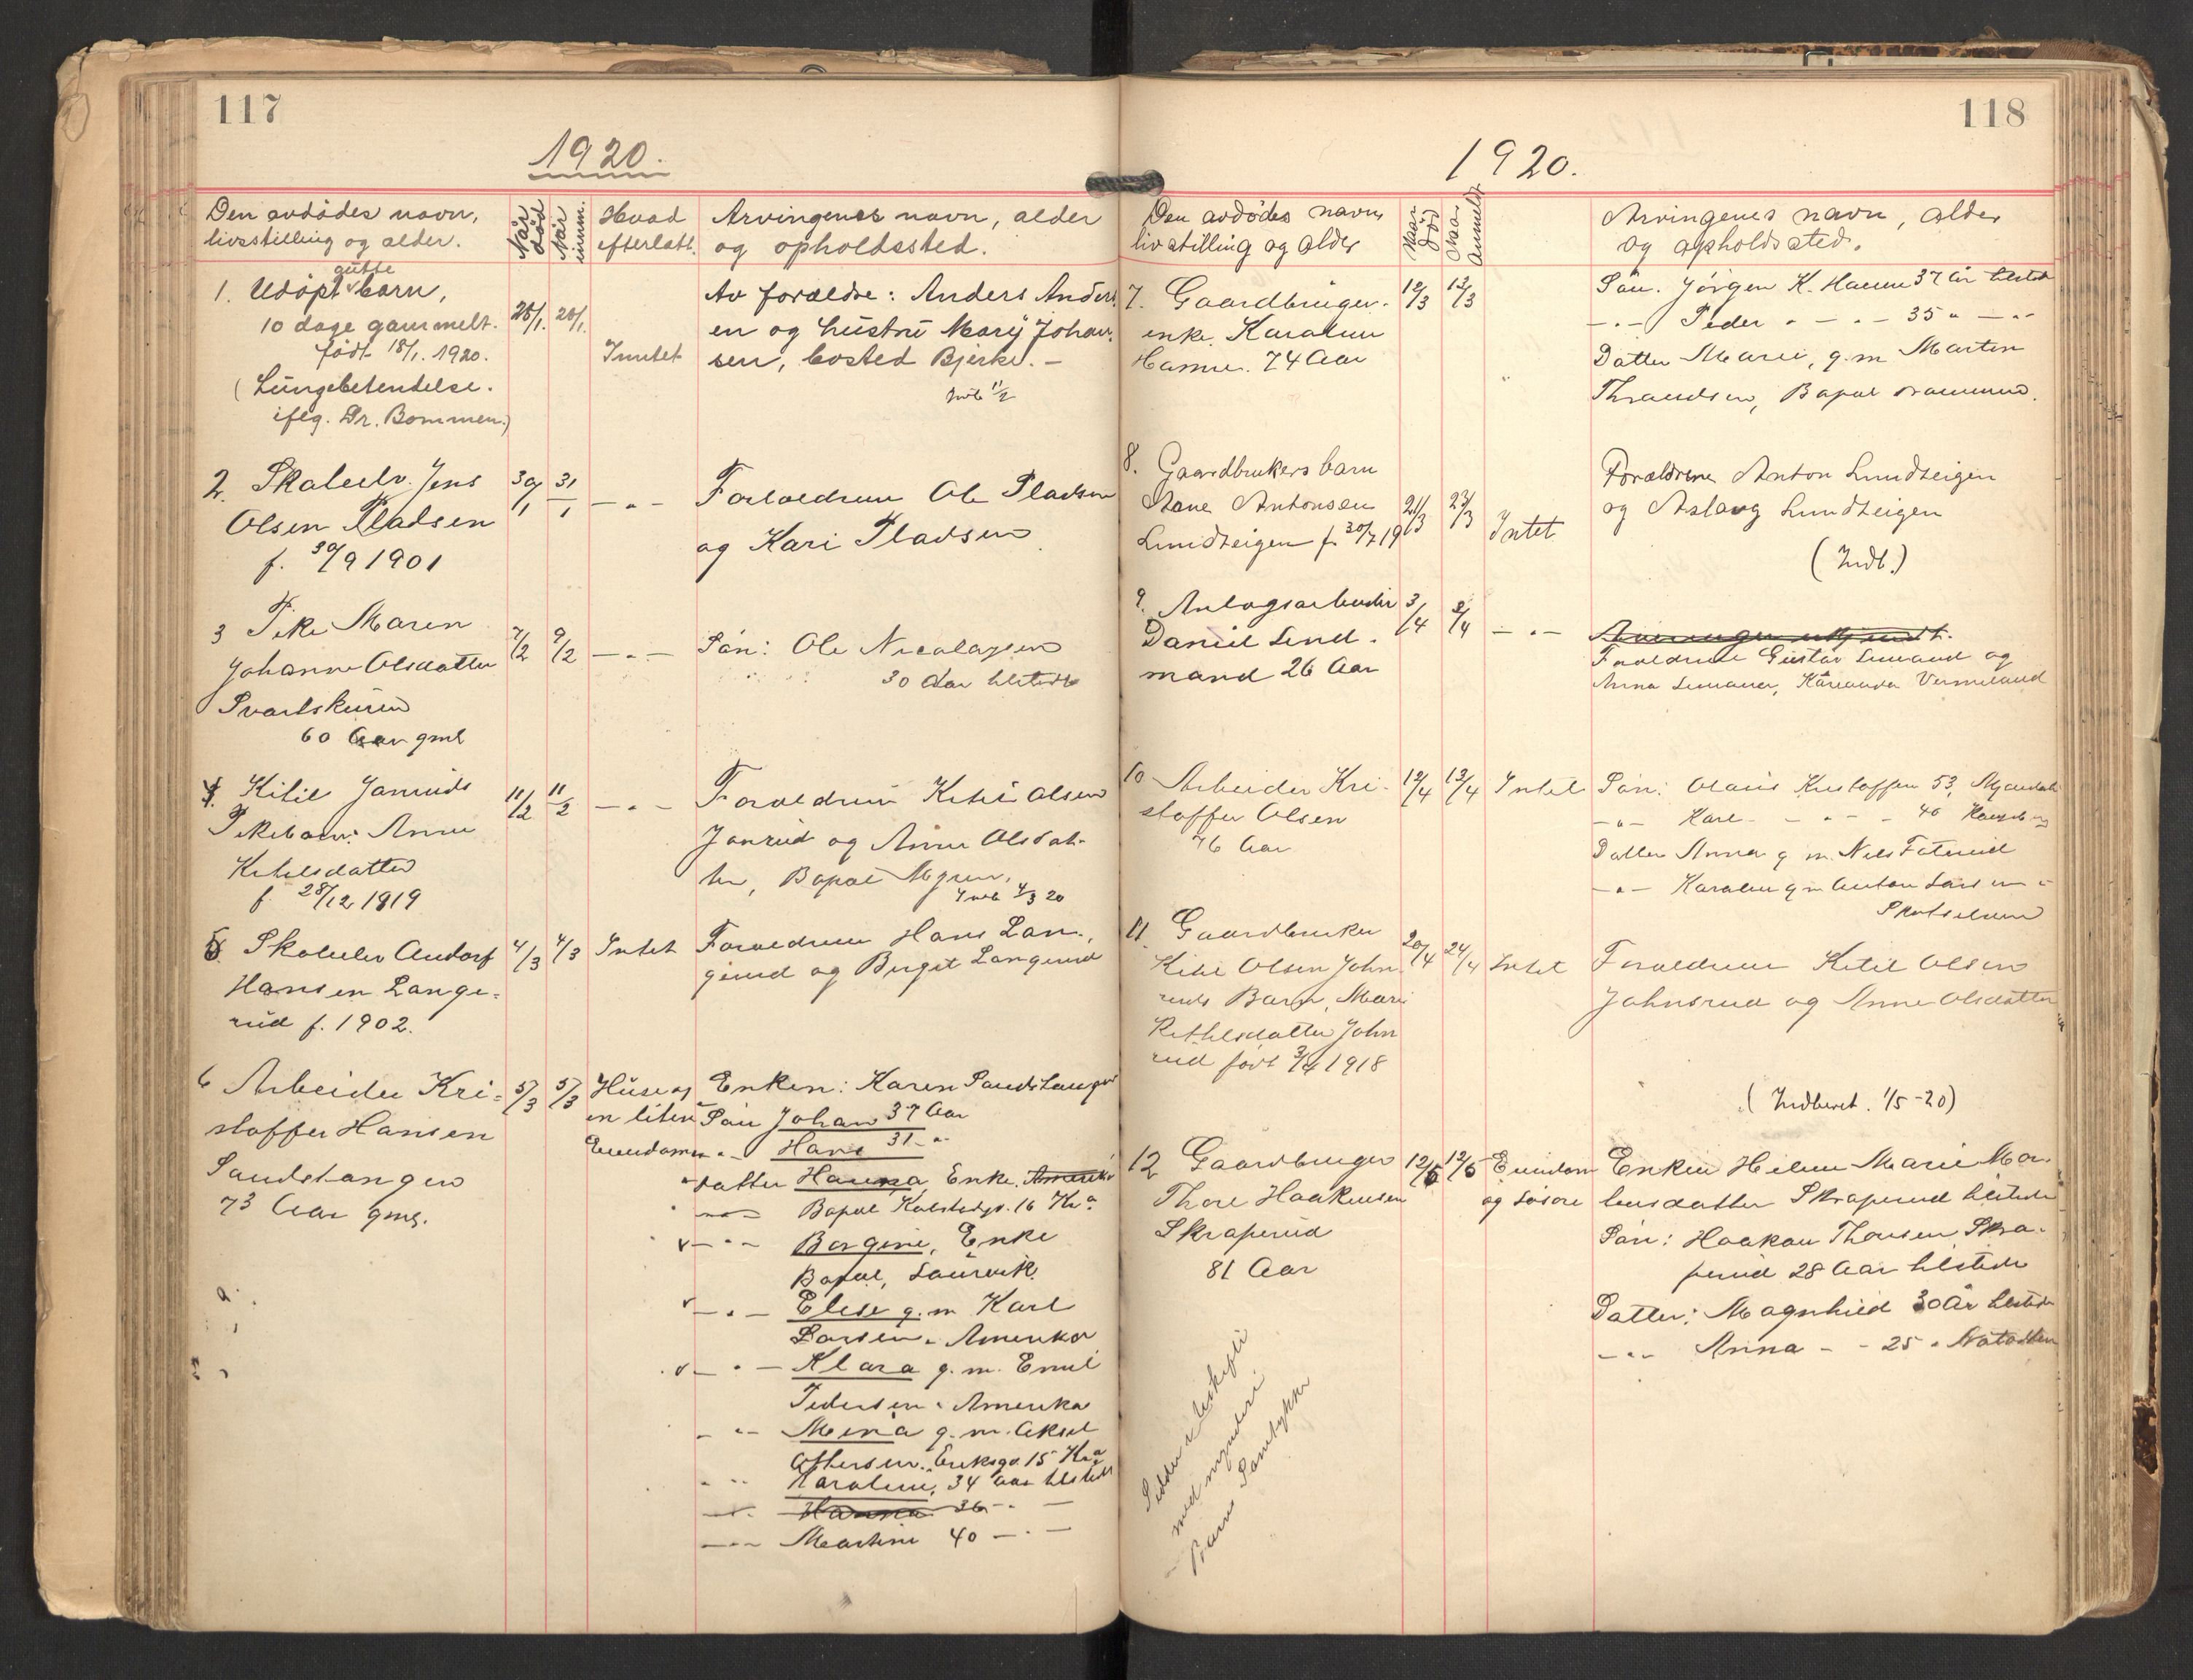 117
1920.
Den avdødes navn,
livsstilling og alder.
Når
død
Når
innm.
Hvad
efterlatt.
Arvingenes navn, alder
og opholdssted.
1. Udøpt gutte barn,
10 dage gammelt.
født 18/1. 1920.
(Lungebetendelse.
iflg. Dr. Bommen.)
28/1. 28/1.
Intet
Av foreldre: Anders Anders
en og hustru Mary Johan-
sen, bosted Bjerke. —
Indb
2. Skoleelv. Jens
Olsen Pladsen
f. 30/9 1901
30/1 31/1 — " —
Forældrene Ole Pladsen
og Kari Pladsen
3 Pike Maren
Johanne Olsdatter
60 Aar gml
7/2 9/2 — " —
Søn: Ole Nicolaysen
30 Aar tilstede
4. Kitil Jonruds
Pikebarn: Anne
Kitilsdatter
f. 28/12 1919
11/2 11/2 — " —
Forældrene Kitil Olsen
Jonrud og Anne Olsdat-
ter, Bopæl Myren,
Indb 4/3 20
5. Skoleelev Andorf
Hansen Lange-
rud f. 1902.
4/3 4/3 Intet
Forældrene Hans Lan-
gerud og Birgit Langerud
6 Arbeider Kri-
stoffer Hansen
Sandstangen
73 Aar gml.
5/3 5/3 Huse og
en liten
Eiendom
Enken: Karen Sandstangen
Søn Johan 37 Aar
" — Hans 31 — "
Datter Hanna, Enke. Amerika
Bopæl 16 Kr.a
— " — Borgine, Enke
Bopæl, Laurvik.
— " — Elise g.m. Karl
Larsen. Amerika
— " — Klara g.m. Emil
Pedersen. Amerika
— " — Mina g.m. Aksel
Eriksgd. 15 Kr.a
— " — Karoline, 34 aar tilstede
— " — Hanna 36 — " —
— " — Martine 40 — " —
118
1920.
Den avdødes navn,
livsstilling og alder
Naar
død
Naar
anmeldt
Arvingenes navn, alder
og opholdssted.
7. Gaardbruger-
enke. Karoline
Hamre. 74 Aar
12/3 12/3
Søn. Jørgen K. Hamre 37 år tilsted
— " — Peder " — " — 35 " — " —
Datter Marie, g.m Martin
Thrandsen, Bopæl Drammen.
8. Gaardbrukers barn
Aane Antonsen
Lundteigen f. 30/7 19
21/3 23/3 Intet
Forældrene Anton Lundteigen
og Aslaug Lundteigen
(Indb.)
9. Anlægsarbeider
Daniel Lind-
mand 26 Aar
3/4 8/4 — " —
Forældrene Gustav og
Anna Vermeland
10 Arbeider Kri-
stoffer Olsen
76 Aar
12/4 13/4 Intet
Søn: Olaus Kristoffersen 53,
— " — Karl — " — 40
Datter Anna g m. Nels
— " — Karoline g m Anton Larsen "
Skotselven
11. Gaardbruker
Kitil Olsen John-
ruds Barn, Mari
Kittilsdatter John
rud født 3/4 1918
20/4 24/4 Intet
Forældrene Kitil Olsen
Johnsrud og Anne Olsdatter
(Indberet. 1/5 -20)
12 Gaardbruger
Thore Haakensen
Skraperud
81 Aar
12/5 12/5 Eiendom
og løsøre
Enken Helene Marie Mor-
tensdatter Skraperud tilstede
Søn: Haakon Thoresen Skra-
perud 28 Aar tilstede
Datter: Magnhild 30 År tilstede
— " — Anna — - 25 " Notodden
Sidder i uskiftet
med myndige
Barns Samtykke